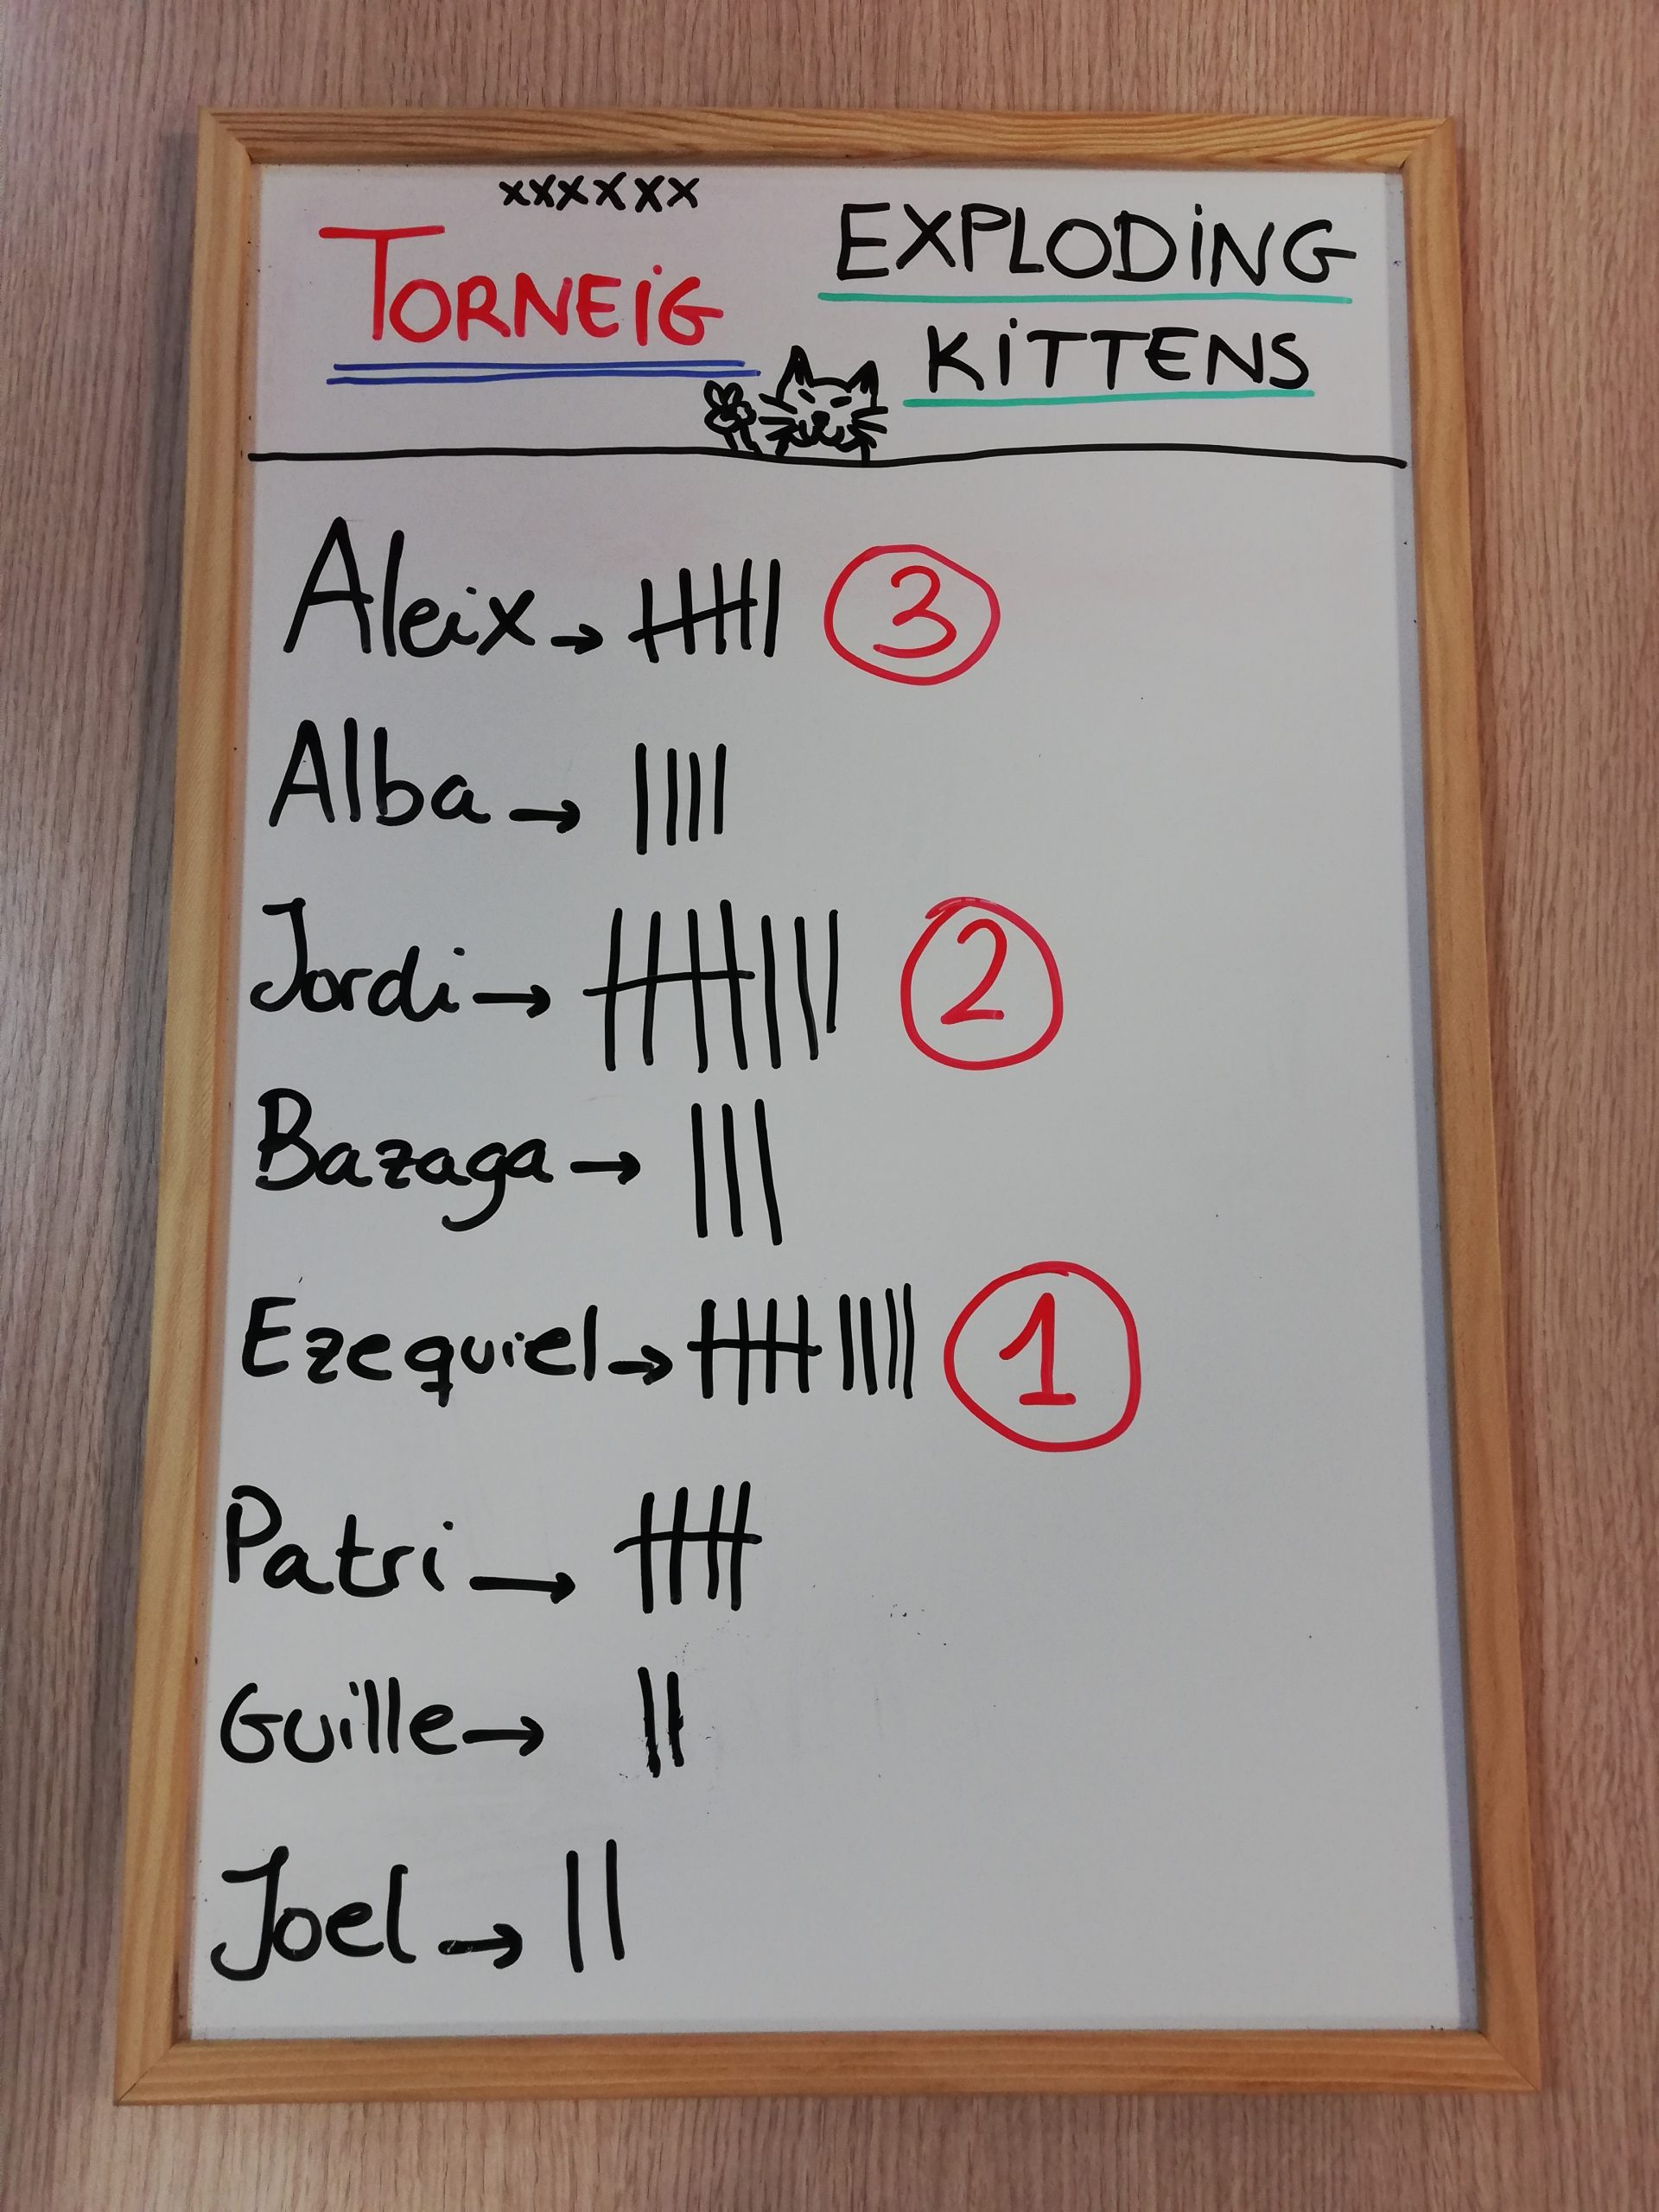 xxxxxxx
TORNEiG
EXPLODiNG
KiTTENS
Aleix → 3
Alba →
Jordi → 2
Bazaga →
Ezequiel → 1
Patri →
Guille →
Joel →